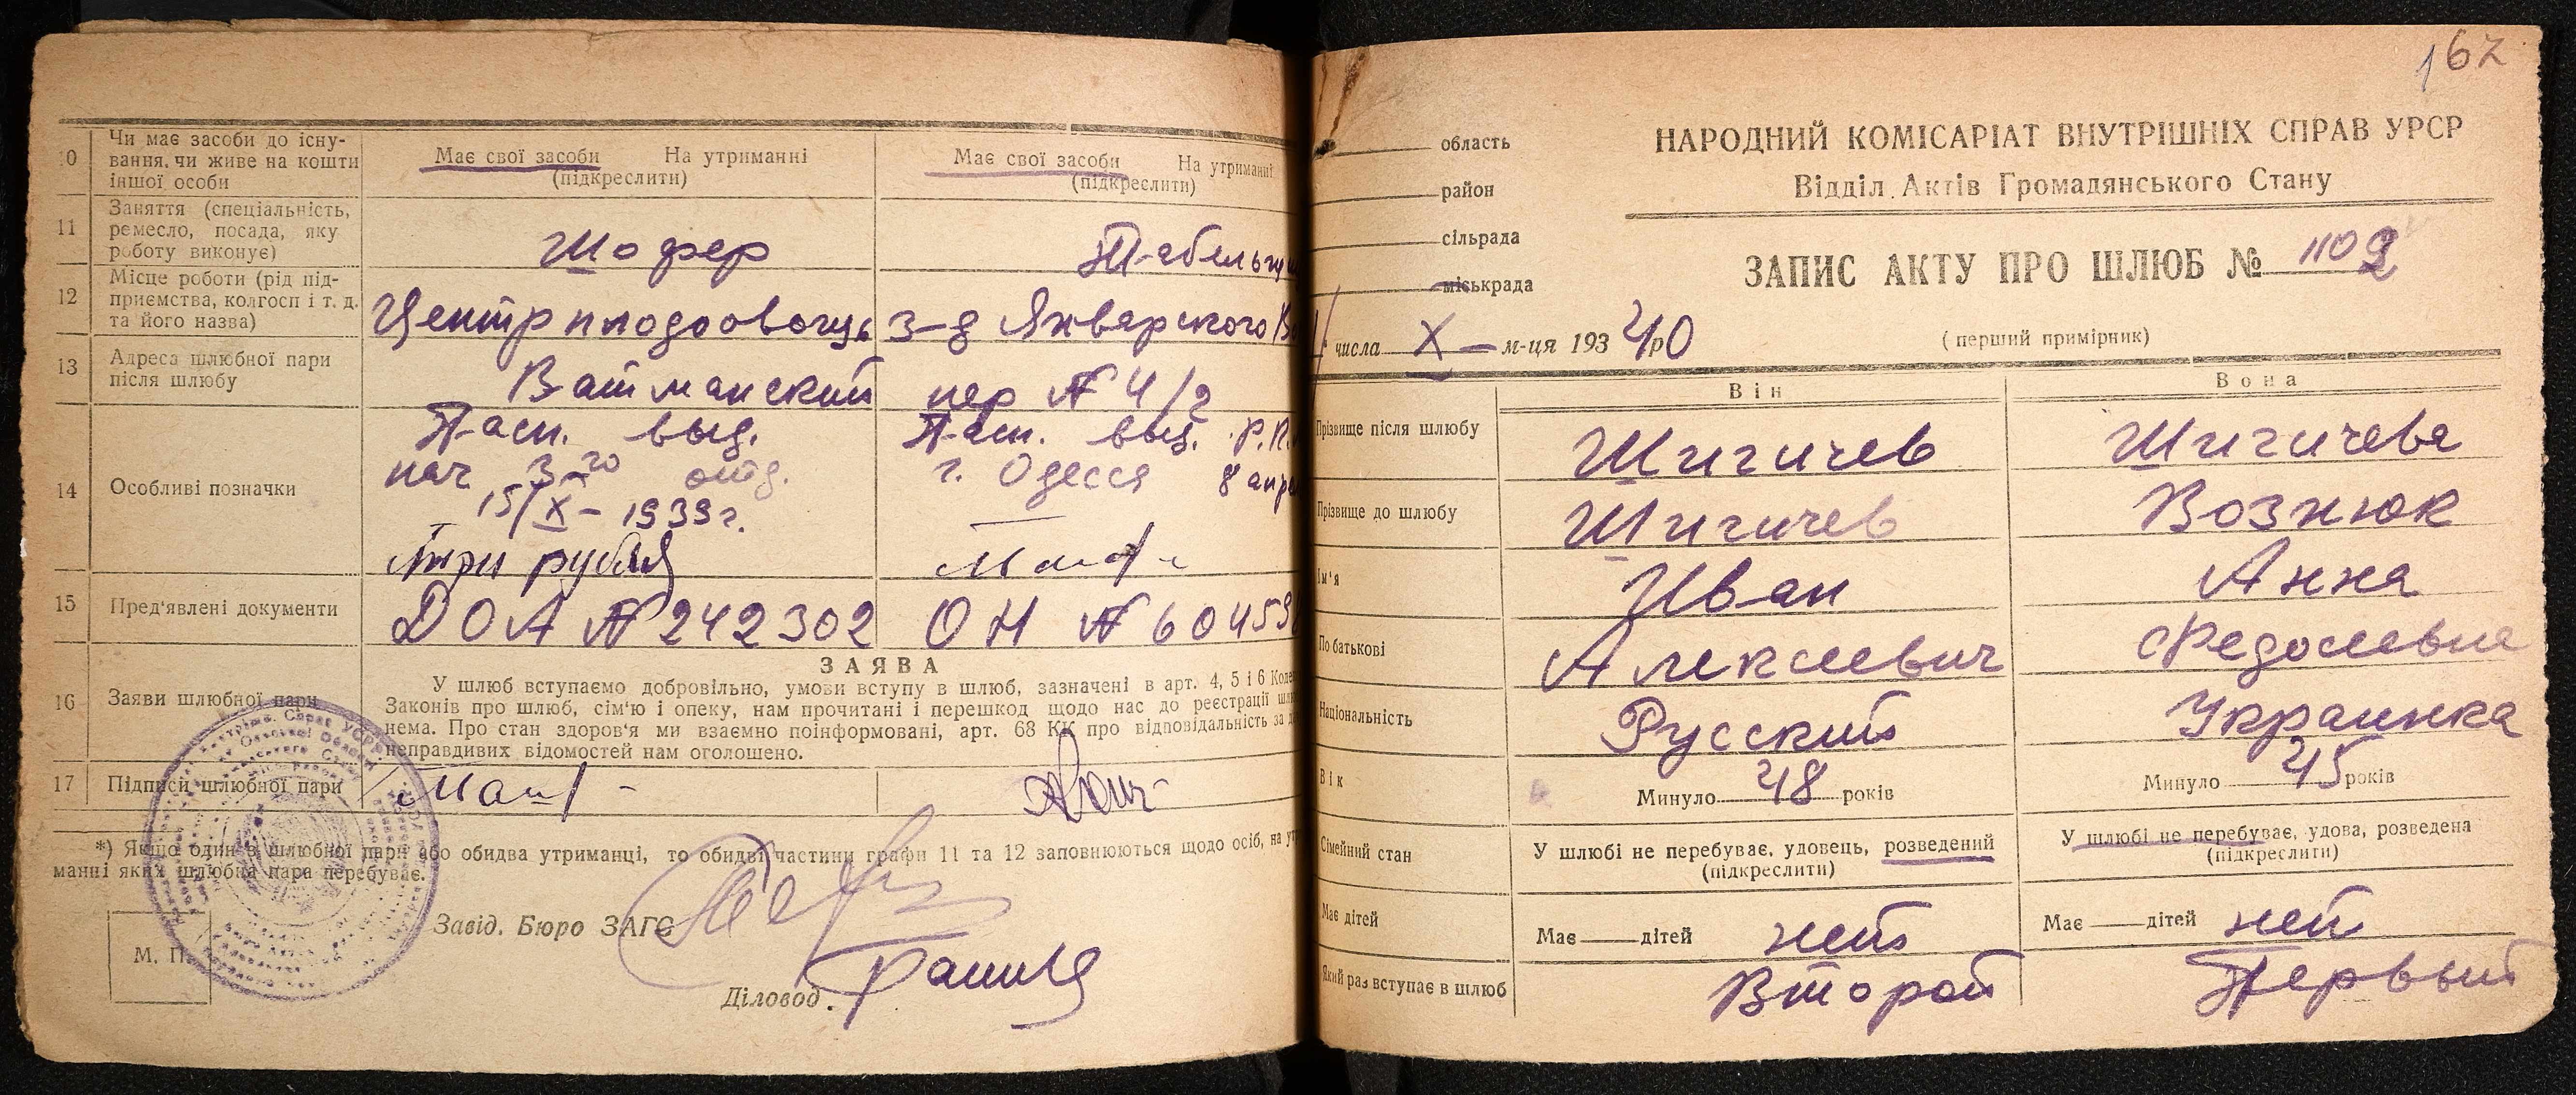 10 Чи має засоби до існу-
вання, чи живе на кошти
іншої особи
Має свої засоби На утриманні
(підкреслити)
Має свої засоби На утриманні
(підкреслити)
11 Заняття (спеціальність,
ремесло, посада, яку
роботу виконує)
Шофер
12 Місце роботи (рід під-
приємства, колгосп і т. д.
та його назва)
З-д Январского
13 Адреса шлюбної пари
після шлюбу
Ватманский пер № 4/2
14 Особливі позначки
Пасп. выд.
нач 3-го отд.
15/X - 1939 г.
три рубля
Пасп. выд. Р.К.
г. Одесса 8 апр
15 Пред'явлені документи
ДОА № 242302
ОН № 60459
16 Заяви шлюбної пари
ЗАЯВА
У шлюб вступаємо добровільно, умови вступу в шлюб, зазначені в арт. 4, 5 і 6
Законів про шлюб, сім'ю і опеку, нам прочитані і перешкод щодо нас до реєстрації
нема. Про стан здоров'я ми взаємно поінформовані, арт. 68 КК про відповідальність за
неправдивих відомостей нам оголошено.
17 Підписи шлюбної пари
*) Якщо один з шлюбної пари або обидва утриманці, то обидві частини графи 11 та 12 заповнюються щодо осіб, на
манні яких шлюбна пара перебуває.
М. П.
Завід. Бюро ЗАГС
Діловод.
162
область
район
сільрада
міськрада
НАРОДНИЙ КОМІСАРІАТ ВНУТРІШНІХ СПРАВ УРСР
Відділ Актів Громадянського Стану
ЗАПИС АКТУ ПРО ШЛЮБ № 1102
числа X м-ця 193 40 р
(перший примірник)
Він
Вона
Прізвище після шлюбу
Шигичев
Шигичева
Прізвище до шлюбу
Шигичев
Вознюк
Ім'я
Иван
Анна
По батькові
Алексеевич
Федосеевна
Національність
Русский
Украинка
Вік
Минуло 48 років
Минуло 45 років
Сімейний стан
У шлюбі не перебуває, удовець, розведений
(підкреслити)
У шлюбі не перебуває, удова, розведена
(підкреслити)
Має дітей
Має дітей нет
Має дітей нет
Який раз вступає в шлюб
Второй
Первый